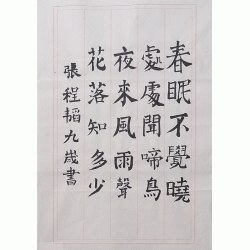 春眠不覺曉
處處聞啼鳥
夜來風雨聲
花落知多少
張程韜九歲書